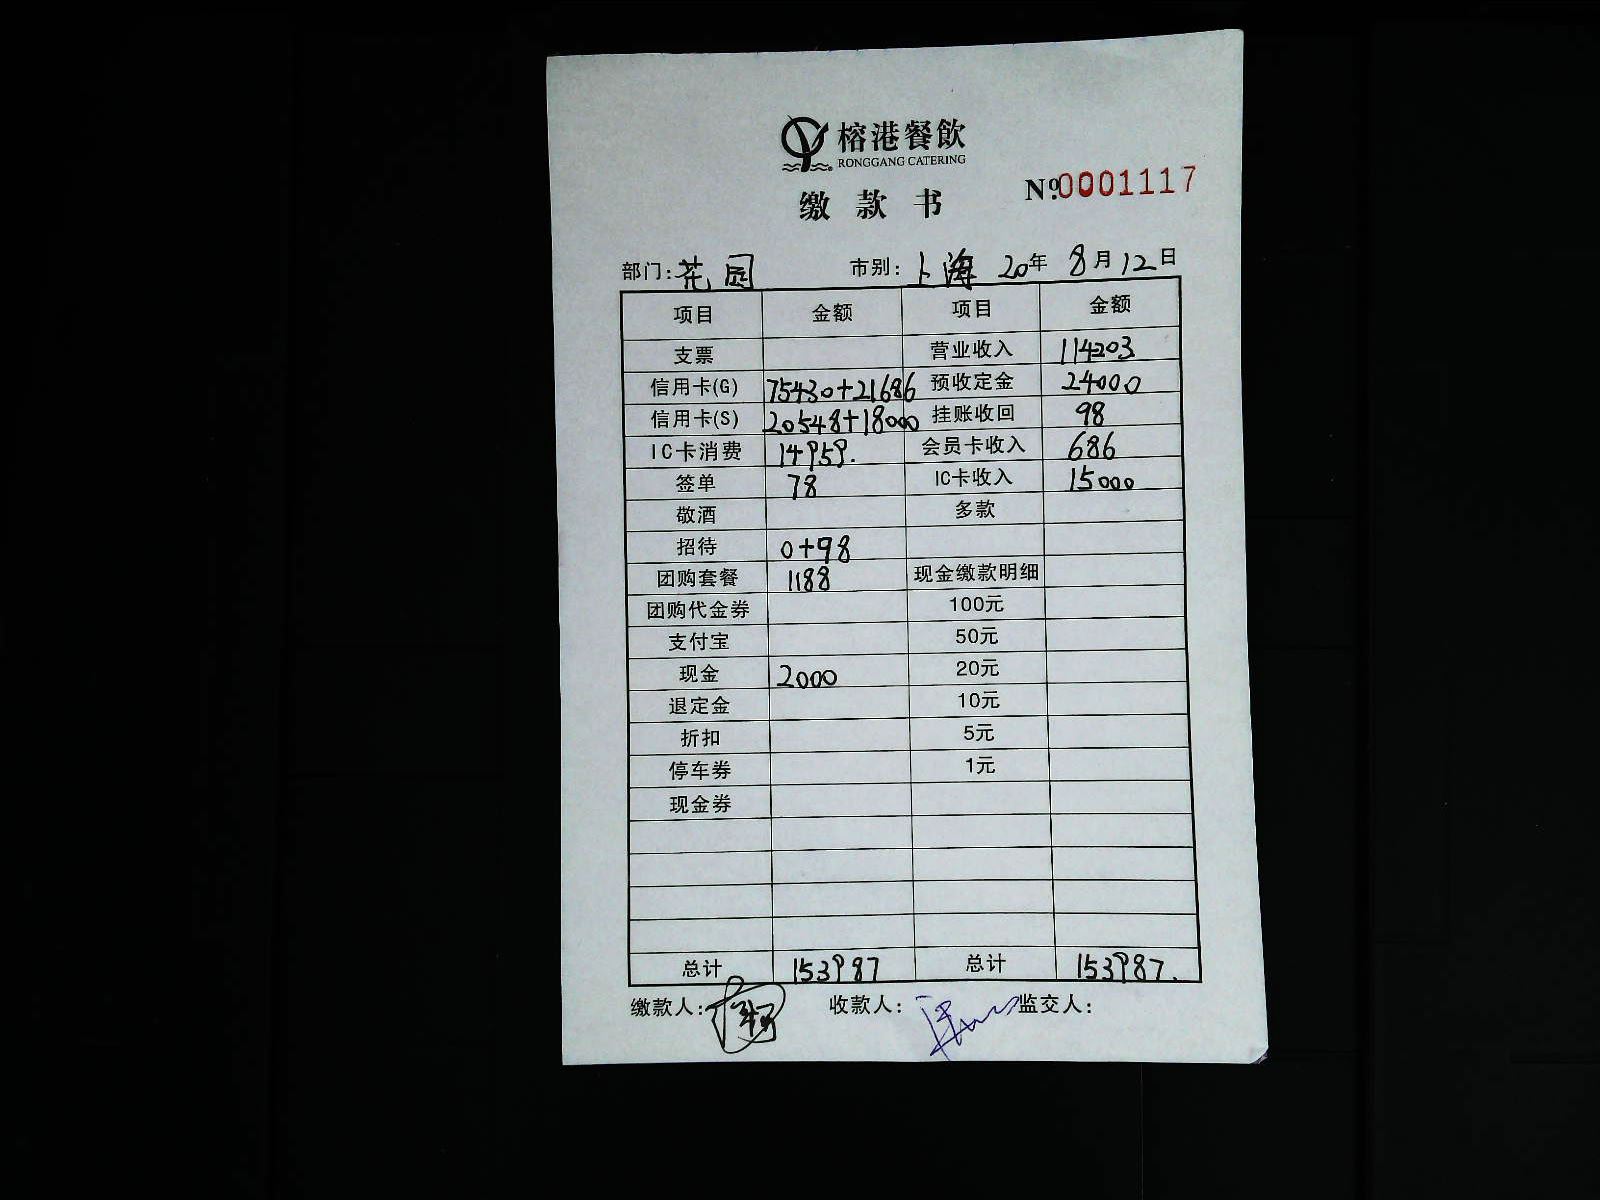 榕港餐飲
RONGGANG CATERING
缴款书
№.0001117
部门:花园 市别:上海 20年8月12日
项目 金额 项目 金额
支票 营业收入 114203
信用卡(G) 75430+21686 预收定金 24000
信用卡(S) 20548+18000 挂账收回 98
IC卡消费 14959. 会员卡收入 686
签单 78 IC卡收入 15000
敬酒 多款
招待 0+98
团购套餐 1188 现金缴款明细
团购代金券 100元
支付宝 50元
现金 2000 20元
退定金 10元
折扣 5元
停车券 1元
现金券
总计 153987 总计 153987.
缴款人: 收款人: 监交人: